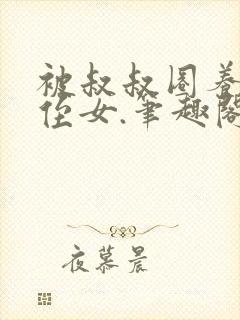 被叔叔圈养
侄女.笔趣阁
夜慕晨